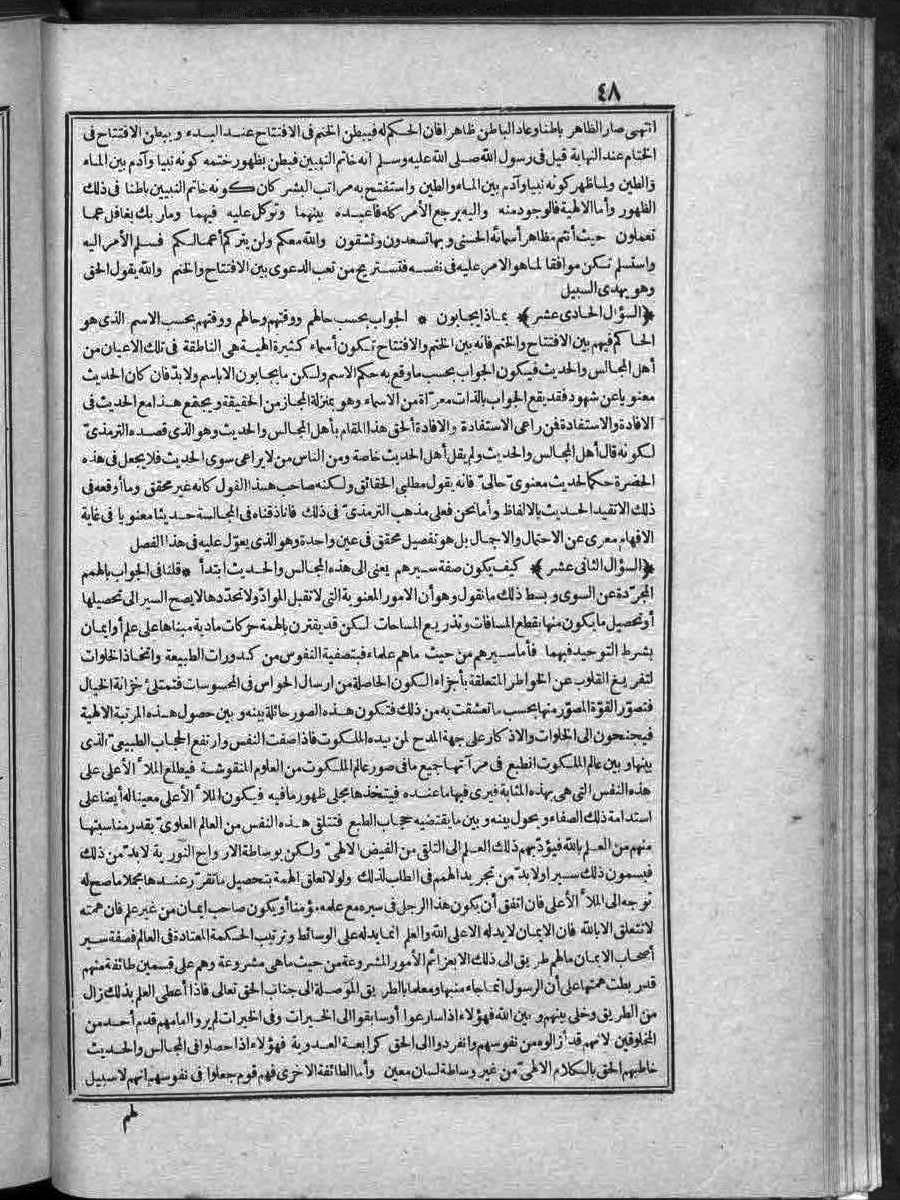 ٤٨
انتهى صار الظاهر باطنا وعاد الباطن ظاهرا فان الحكم له فيبطن الختم فى الافتتاح عند البدء ويبطن الافتتاح فى
الختام عند النهاية قيل فى رسول الله صلى الله عليه وسلم انه خاتم النبيين فبطن بظهور ختمه كونه نبيا وآدم بين الماء
والطين ولما ظهر كونه نبيا وآدم بين الماء والطين واستفتح به مراتب البشر كان كونه خاتم النبيين باطنا فى ذلك
الظهور وأما الالهية فالوجود منه واليه يرجع الأمر كله فاعبده بينهما وتوكل عليه فيهما وما ربك بغافل عما
تعملون حيث أنتم مظاهر أسمائه الحسنى وبها تسعدون وتشقون والله معكم ولن يتركم أعمالكم فسلم الأمر اليه
واستسلم تكن موافقا لما هو الامر عليه فى نفسه فتستريح من تعب الدعوى بين الافتتاح والختم والله يقول الحق
وهو يهدى السبيل
﴿السؤال الحادى عشر﴾ بماذا يجابون * الجواب بحسب حالهم ووقتهم وحالهم ووقتهم بحسب الاسم الذى هو
الحاكم فيهم بين الافتتاح والختم فانه بين الختم والافتتاح تكون أسماء كثيرة الهية هى الناطقة فى تلك الاعيان من
أهل المجالس والحديث فيكون الجواب بحسب ما وقع به حكم الاسم ولكن ما يجابون الا باسم ولابد فان كان الحديث
معنويا عن شهود فقد يقع الجواب بالذات معرّاة من الاسماء وهو بمنزلة المجاز من الحقيقة ويجتمع هذا مع الحديث فى
الافادة والاستفادة فمن راعى الاستفادة والافادة ألحق هذا المقام بأهل المجالس والحديث وهو الذى قصده الترمذىّ
لكونه قال أهل المجالس والحديث ولم يقل أهل الحديث خاصة ومن الناس من لا يراعى سوى الحديث فلا يجعل فى هذه
الحضرة حكما لحديث معنوىّ حالىّ فانه يقول مطلبى الحقائق ولكنه صاحب هذا القول كانه غير محقق وما أوقعه فى
ذلك الا تقييد الحديث بالالفاظ وأما نحن فعلى مذهب الترمذىّ فى ذلك فانا ذقناه فى المجالسة حديثا معنويا فى غاية
الافهام معرى عن الاحتمال والاجمال بل هو تفصيل محقق فى عين واحدة وهو الذى يعوّل عليه فى هذا الفصل
﴿السؤال الثانى عشر﴾ كيف يكون صفة سيرهم يعنى الى هذه المجالس والحديث ابتدأ * قلنا فى الجواب بالهمم
المجرّدة عن السوى وبسط ذلك ما نقول وهو أن الامور المعنوية التى لا تقبل الموادّ ولا تحدّدها لا يصح السير الى تحصيلها
أو تحصيل ما يكون منها بقطع المسافات وتذريع المساحات لكن قد يقترن بالهمة حركات مادية مبناها على علم أو ايمان
بشرط التوحيد فيهما فأما سيرهم من حيث ما هم علماء فبتصفية النفوس من كدورات الطبيعة واتخاذ الخلوات
لتفريغ القلوب عن الخواطر المتعلقة بأجزاء الكون الحاصلة من ارسال الحواس فى المحسوسات فتمتلئ خزانة الخيال
فتصوّر القوّة المصوّر منها بحسب ما تعشقت به من ذلك فتكون هذه الصور حائلة بينه وبين حصول هذه المرتبة الالهية
فيجنحون الى الخلوات والاذكار على جهة المدح لمن بيده الملكوت فاذا صفت النفس وارتفع الحجاب الطبيعىّ الذى
بينها وبين عالم الملكوت انطبع فى مرآتها جميع ما فى صور عالم الملكوت من العلوم المنقوشة فيطلع الملأ الأعلى على
هذه النفس التى هى بهذه المثابة فيرى فيها ما عنده فيتخذها مجلى ظهور ما فيه فيكون الملأ الأعلى معينا له أيضا على
استدامة ذلك الصفاء ويحول بينه وبين ما يقتضيه حجاب الطبع فتتلقى هذه النفس من العالم العلوىّ بقدر مناسبتها
منهم من العلم بالله فيؤدّيهم ذلك العلم الى التلقى من الفيض الالهىّ ولكن بوساطة الارواح النّورية لابدّ من ذلك
فيسمون ذلك سيرا ولابدّ من تجريد الهمم فى الطلب لذلك ولولا تعلق الهمة بتحصيل ما تقرّر عندها مجملا ما صح له
توجه الى الملأ الأعلى فان اتفق أن يكون هذا الرجل فى سيره مع علمه مؤمنا أو يكون صاحب ايمان من غير علم فان همته
لا تتعلق الا بالله فان الايمان لا يدله الا على الله والعلم انما يدله على الوسائط وترتيب الحكمة المعتادة فى العالم فصفة سير
أصحاب الايمان مالهم طريق الى ذلك الا بعزائم الأمور المشروعة من حيث ما هى مشروعة وهم على قسمين طائفة منهم
قد ربطت همتها على أن الرسول انما جاء منبها ومعلما بالطريق الموصلة الى جناب الحق تعالى فاذا أعطى العلم بذلك زال
من الطريق وخلى بينهم وبين الله فهؤلاء اذا سارعوا أو سابقوا الى الخيرات وفى الخيرات لم يروا امامهم قدم أحد من
المخلوقين لانهم قد أزالوه من نفوسهم وانفردوا الى الحق كرابعة العدوية فهؤلاء اذا حصلوا فى المجالس والحديث
خاطبهم الحق بالكلام الالهىّ من غير وساطة لسان معين وأما الطائفة الاخرى فهم قوم جعلوا فى نفوسهم انهم لا سبيل
لهم